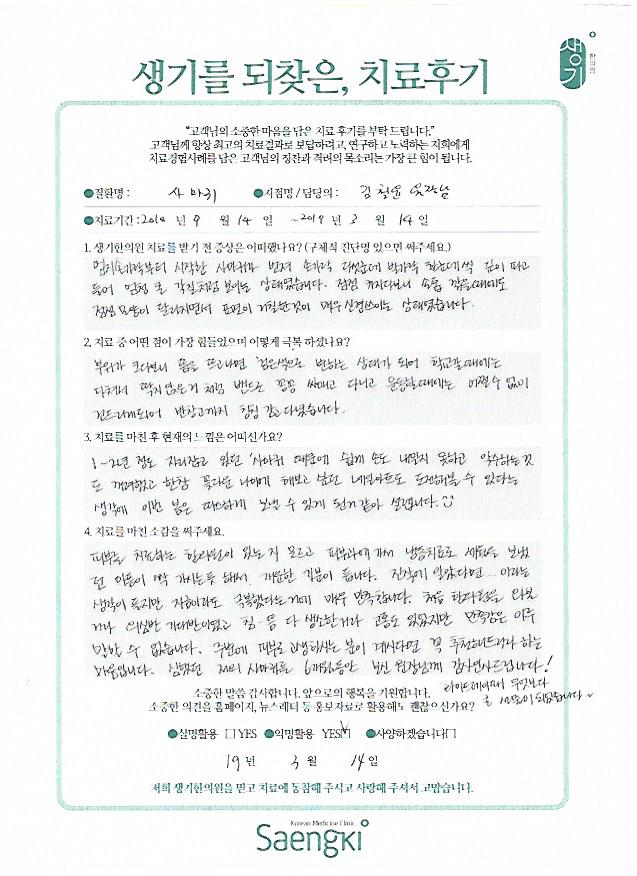 생기
한의원
생기를 되찾은, 치료후기
"고객님의 소중한 마음을 담은 치료 후기를 부탁 드립니다."
고객님께 항상 최고의 치료결과로 보답하려고, 연구하고 노력하는 저희에게
치료경험사례를 담은 고객님의 칭찬과 격려의 목소리는 가장 큰 힘이 됩니다.
●질환명 : 사마귀 ●지점명 / 담당의 : 김철윤 원장님
●치료기간 : 2018 년 9 월 14 일 ~ 2019 년 3 월 14 일
1. 생기한의원 치료를 받기 전 증상은 어떠했나요? (구체적 진단명 있으면 써주세요.)
엄지손가락부터 시작한 사마귀가 번져 손가락 다섯군데 깊이 파고
들어 멀청 큰 각질처럼 보이는 상태였습니다. 점점 커지다보니 손톱 깎을때에도
점점 모양이 달라지면서 표면이 거칠한것이 매우 신경쓰이는 상태였습니다.
2. 치료 중 어떤 점이 가장 힘들었으며 어떻게 극복 하셨나요?
부위가 크다보니 뜸을 뜨고나면 검은색으로 변하는 상태가 되어 학교갈때에는
다쳐서 딱지앉은거처럼 밴드로 꽁꽁 싸매고 다니고 운동할때에는 어쩔 수 없이
건드리게되어 반창고까지 칭칭 감고다녔습니다.
3. 치료를 마친 후 현재의 느낌은 어떠신가요?
1~2년 정도 자리잡고 있던 사마귀 때문에 쉽게 손도 내밀지 못하고 악수하는것
도 꺼려했고 한참 꽃다운 나이에 해보고 싶던 네일아트도 도전해볼 수 있다는
생각에 이번 봄은 따스하게 보낼 수 있게 된거같아 설렙니다.
4. 치료를 마친 소감을 써주세요.
피부를 치료하는 한의원이 있는지 모르고 피부과에 가서 냉동치료로 세월을 보냈
던 아픔이 싹 가시는듯 해서 개운한 기분이 듭니다. 진작에 알았다면... 이라는
생각이 듭지만 지금이라도 극복했다는거에 매우 만족합니다. 처음 한의원을 와보
거나 의심반 기대반이었고 침·뜸 다 생소한거라 고통도 있었지만 만족감은 이루
말할 수 없습니다. 주변에 피부로 고생하시는 분이 계시다면 꼭 추천해드리고자 하는
마음입니다. 심했던 저의 사마귀를 6개월동안 봐주신 원장님께 감사인사드립니다!
소중한 말씀 감사합니다. 앞으로의 행복을 기원합니다.
소중한 의견을 홈페이지, 뉴스레터 등 홍보자료로 활용해도 괜찮으신가요?
●실명활용 □ YES ●익명활용 YES☑ ●사양하겠습니다□
19 년 3 월 14 일
저희 생기한의원을 믿고 치료에 동참해 주시고 사랑해 주셔서 고맙습니다.
Korean Medicine Clinic
Saengki